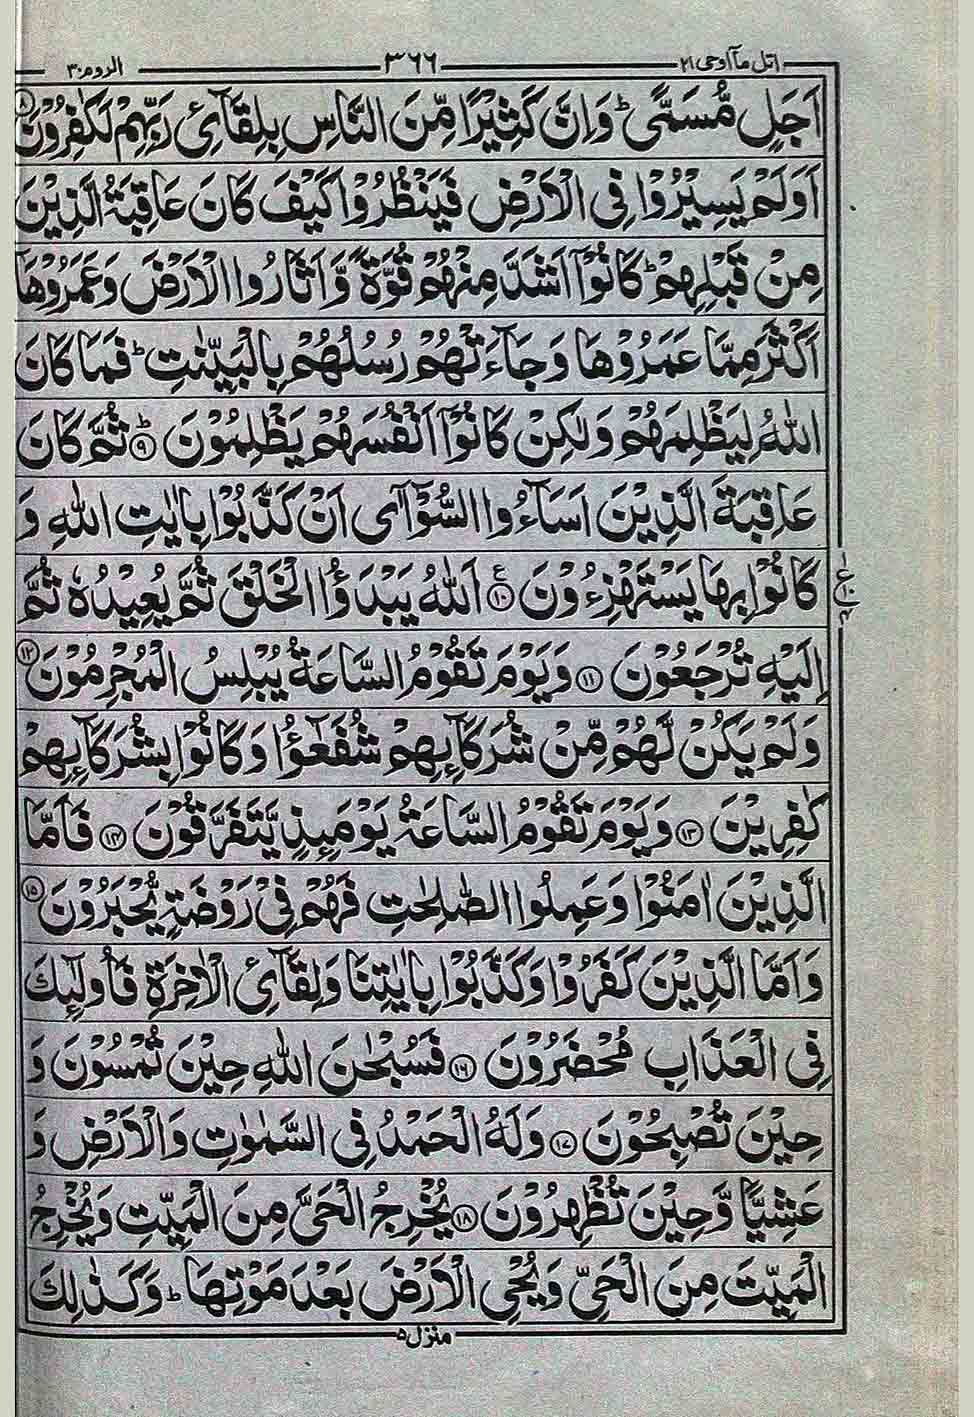 اتل مآ اوحی ۲۱ ۳۶۶ الروم ۳۰
اَجَلٍ مُّسَمًّی ؕ وَاِنَّ كَثِیْرًا مِّنَ النَّاسِ بِلِقَآئِ رَبِّهِمْ لَكٰفِرُوْنَ ﴿۸﴾
اَوَلَمْ یَسِیْرُوْا فِی الْاَرْضِ فَیَنْظُرُوْا كَیْفَ كَانَ عَاقِبَةُ الَّذِیْنَ
مِنْ قَبْلِهِمْ ؕ كَانُوْۤا اَشَدَّ مِنْهُمْ قُوَّةً وَّاَثَارُوا الْاَرْضَ وَعَمَرُوْهَاۤ
اَكْثَرَ مِمَّا عَمَرُوْهَا وَجَآءَتْهُمْ رُسُلُهُمْ بِالْبَیِّنٰتِ ؕ فَمَا كَانَ
اللّٰهُ لِیَظْلِمَهُمْ وَلٰكِنْ كَانُوْۤا اَنْفُسَهُمْ یَظْلِمُوْنَ ﴿۹﴾ ؕ ثُمَّ كَانَ
عَاقِبَةَ الَّذِیْنَ اَسَآءُوا السُّوْٓاٰۤی اَنْ كَذَّبُوْا بِاٰیٰتِ اللّٰهِ وَ
كَانُوْا بِهَا یَسْتَهْزِءُوْنَ ﴿۱۰﴾ ع اَللّٰهُ یَبْدَؤُا الْخَلْقَ ثُمَّ یُعِیْدُهٗ ثُمَّ
اِلَیْهِ تُرْجَعُوْنَ ﴿۱۱﴾ وَیَوْمَ تَقُوْمُ السَّاعَةُ یُبْلِسُ الْمُجْرِمُوْنَ ﴿۱۲﴾
وَلَمْ یَكُنْ لَّهُمْ مِّنْ شُرَكَآىِٕهِمْ شُفَعٰٓؤُا وَكَانُوْا بِشُرَكَآىِٕهِمْ
كٰفِرِیْنَ ﴿۱۳﴾ وَیَوْمَ تَقُوْمُ السَّاعَةُ یَوْمَىِٕذٍ یَّتَفَرَّقُوْنَ ﴿۱۴﴾ فَاَمَّا
الَّذِیْنَ اٰمَنُوْا وَعَمِلُوا الصّٰلِحٰتِ فَهُمْ فِیْ رَوْضَةٍ یُّحْبَرُوْنَ ﴿۱۵﴾
وَاَمَّا الَّذِیْنَ كَفَرُوْا وَكَذَّبُوْا بِاٰیٰتِنَا وَلِقَآئِ الْاٰخِرَةِ فَاُولٰٓىِٕكَ
فِی الْعَذَابِ مُحْضَرُوْنَ ﴿۱۶﴾ فَسُبْحٰنَ اللّٰهِ حِیْنَ تُمْسُوْنَ وَ
حِیْنَ تُصْبِحُوْنَ ﴿۱۷﴾ وَلَهُ الْحَمْدُ فِی السَّمٰوٰتِ وَالْاَرْضِ وَ
عَشِیًّا وَّحِیْنَ تُظْهِرُوْنَ ﴿۱۸﴾ یُخْرِجُ الْحَیَّ مِنَ الْمَیِّتِ وَیُخْرِجُ
الْمَیِّتَ مِنَ الْحَیِّ وَیُحْیِ الْاَرْضَ بَعْدَ مَوْتِهَا ؕ وَكَذٰلِكَ
منزل ۵